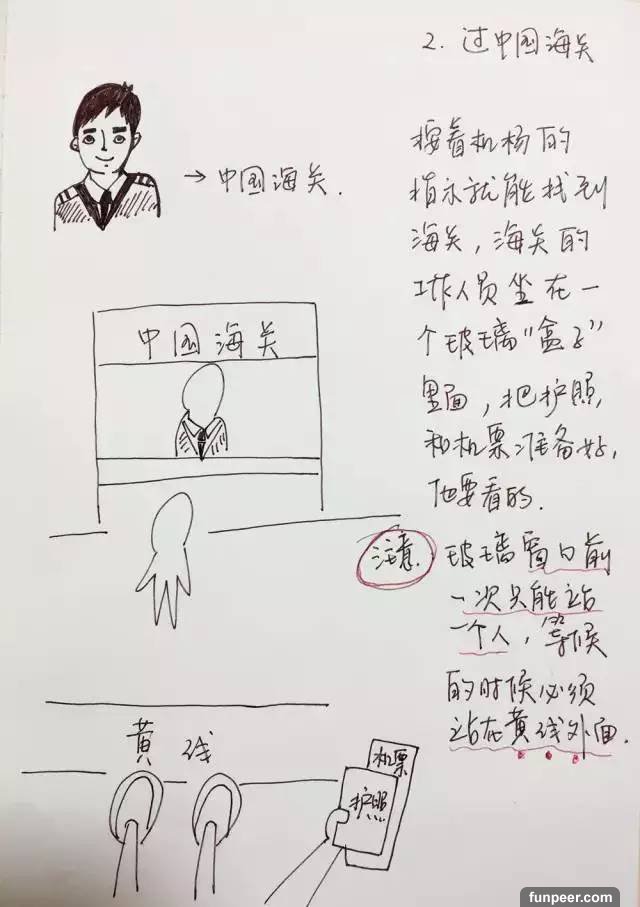 2. 过中国海关
→中国海关.
按着机杨的
指示就能找到
海关,海关的
工作人员坐在一
个玻璃“盒子”
里面,把护照,
和机票准备好,
他要看的.
中国海关
注意. 玻璃窗口前
一次只能站
一个人,等候
的时候必须
站在黄线外面.
黄线
机票
护照
funpeer.com